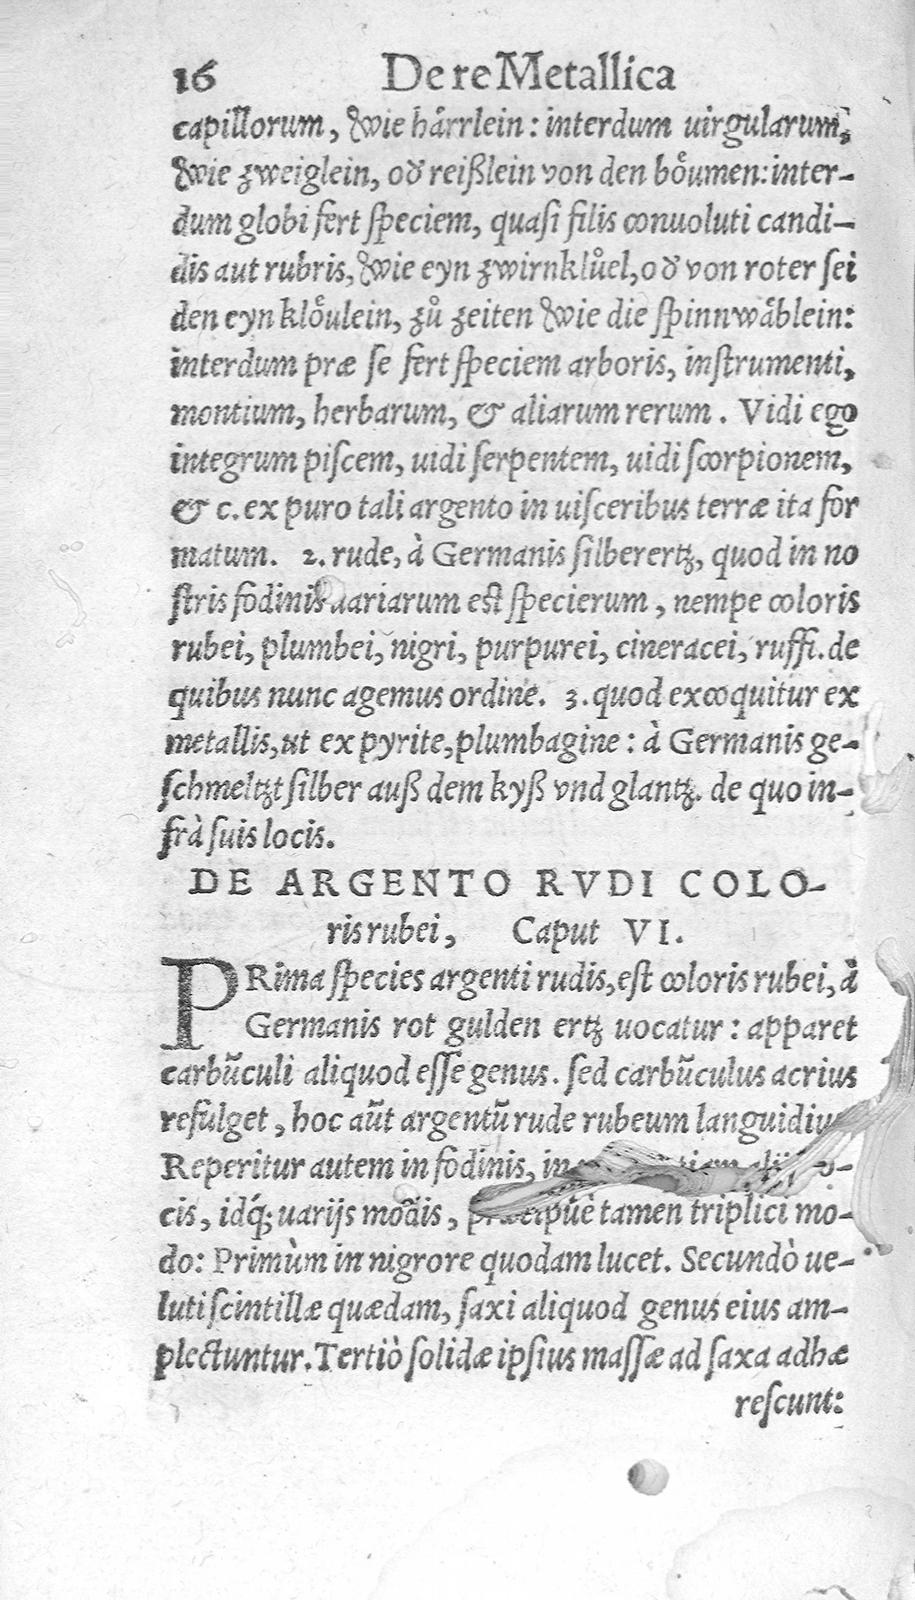 16 De re Metallica
capillorum, wie hårrlein: interdum uirgularum,
wie zweiglein, oď reißlein von den boͤumen: inter-
dum globi fert ſpeciem, quaſi filis conuoluti candi-
dis aut rubris, wie eyn zwirnkluͦel, oď von roter ſei
den eyn kloͤulein, zuͦ zeiten wie die ſpinnwaͤblein:
interdum præ ſe fert ſpeciem arboris, inſtrumenti,
montium, herbarum, & aliarum rerum. Vidi ego
integrum piſcem, uidi ſerpentem, uidi ſcorpionem,
& c. ex puro tali argento in uiſceribus terræ ita for
matum. 2. rude, à Germanis ſilberertz, quod in no
ſtris fodinis uariarum eſt ſpecierum, nempe coloris
rubei, plumbei, nigri, purpurei, cineracei, ruffi. de
quibus nunc agemus ordine. 3. quod excoquitur ex
metallis, ut ex pyrite, plumbagine: à Germanis ge-
ſchmeltzt ſilber auß dem kyß vnd glantz. de quo in-
frà ſuis locis.
DE ARGENTO RVDI COLO-
ris rubei, Caput VI.
PRima ſpecies argenti rudis, eſt coloris rubei, à
Germanis rot gulden ertz uocatur: apparet
carbũculi aliquod eſſe genus. ſed carbũculus acrius
refulget, hoc aũt argentũ rude rubeum languidius
Reperitur autem in fodinis, in
cis, idq́; uarijs modis, præcipuè tamen triplici mo-
do: Primùm in nigrore quodam lucet. Secundò ue-
luti ſcintillæ quædam, ſaxi aliquod genus eius am-
plectuntur. Tertiò ſolidæ ipſius maſſæ ad ſaxa adhæ
reſcunt: